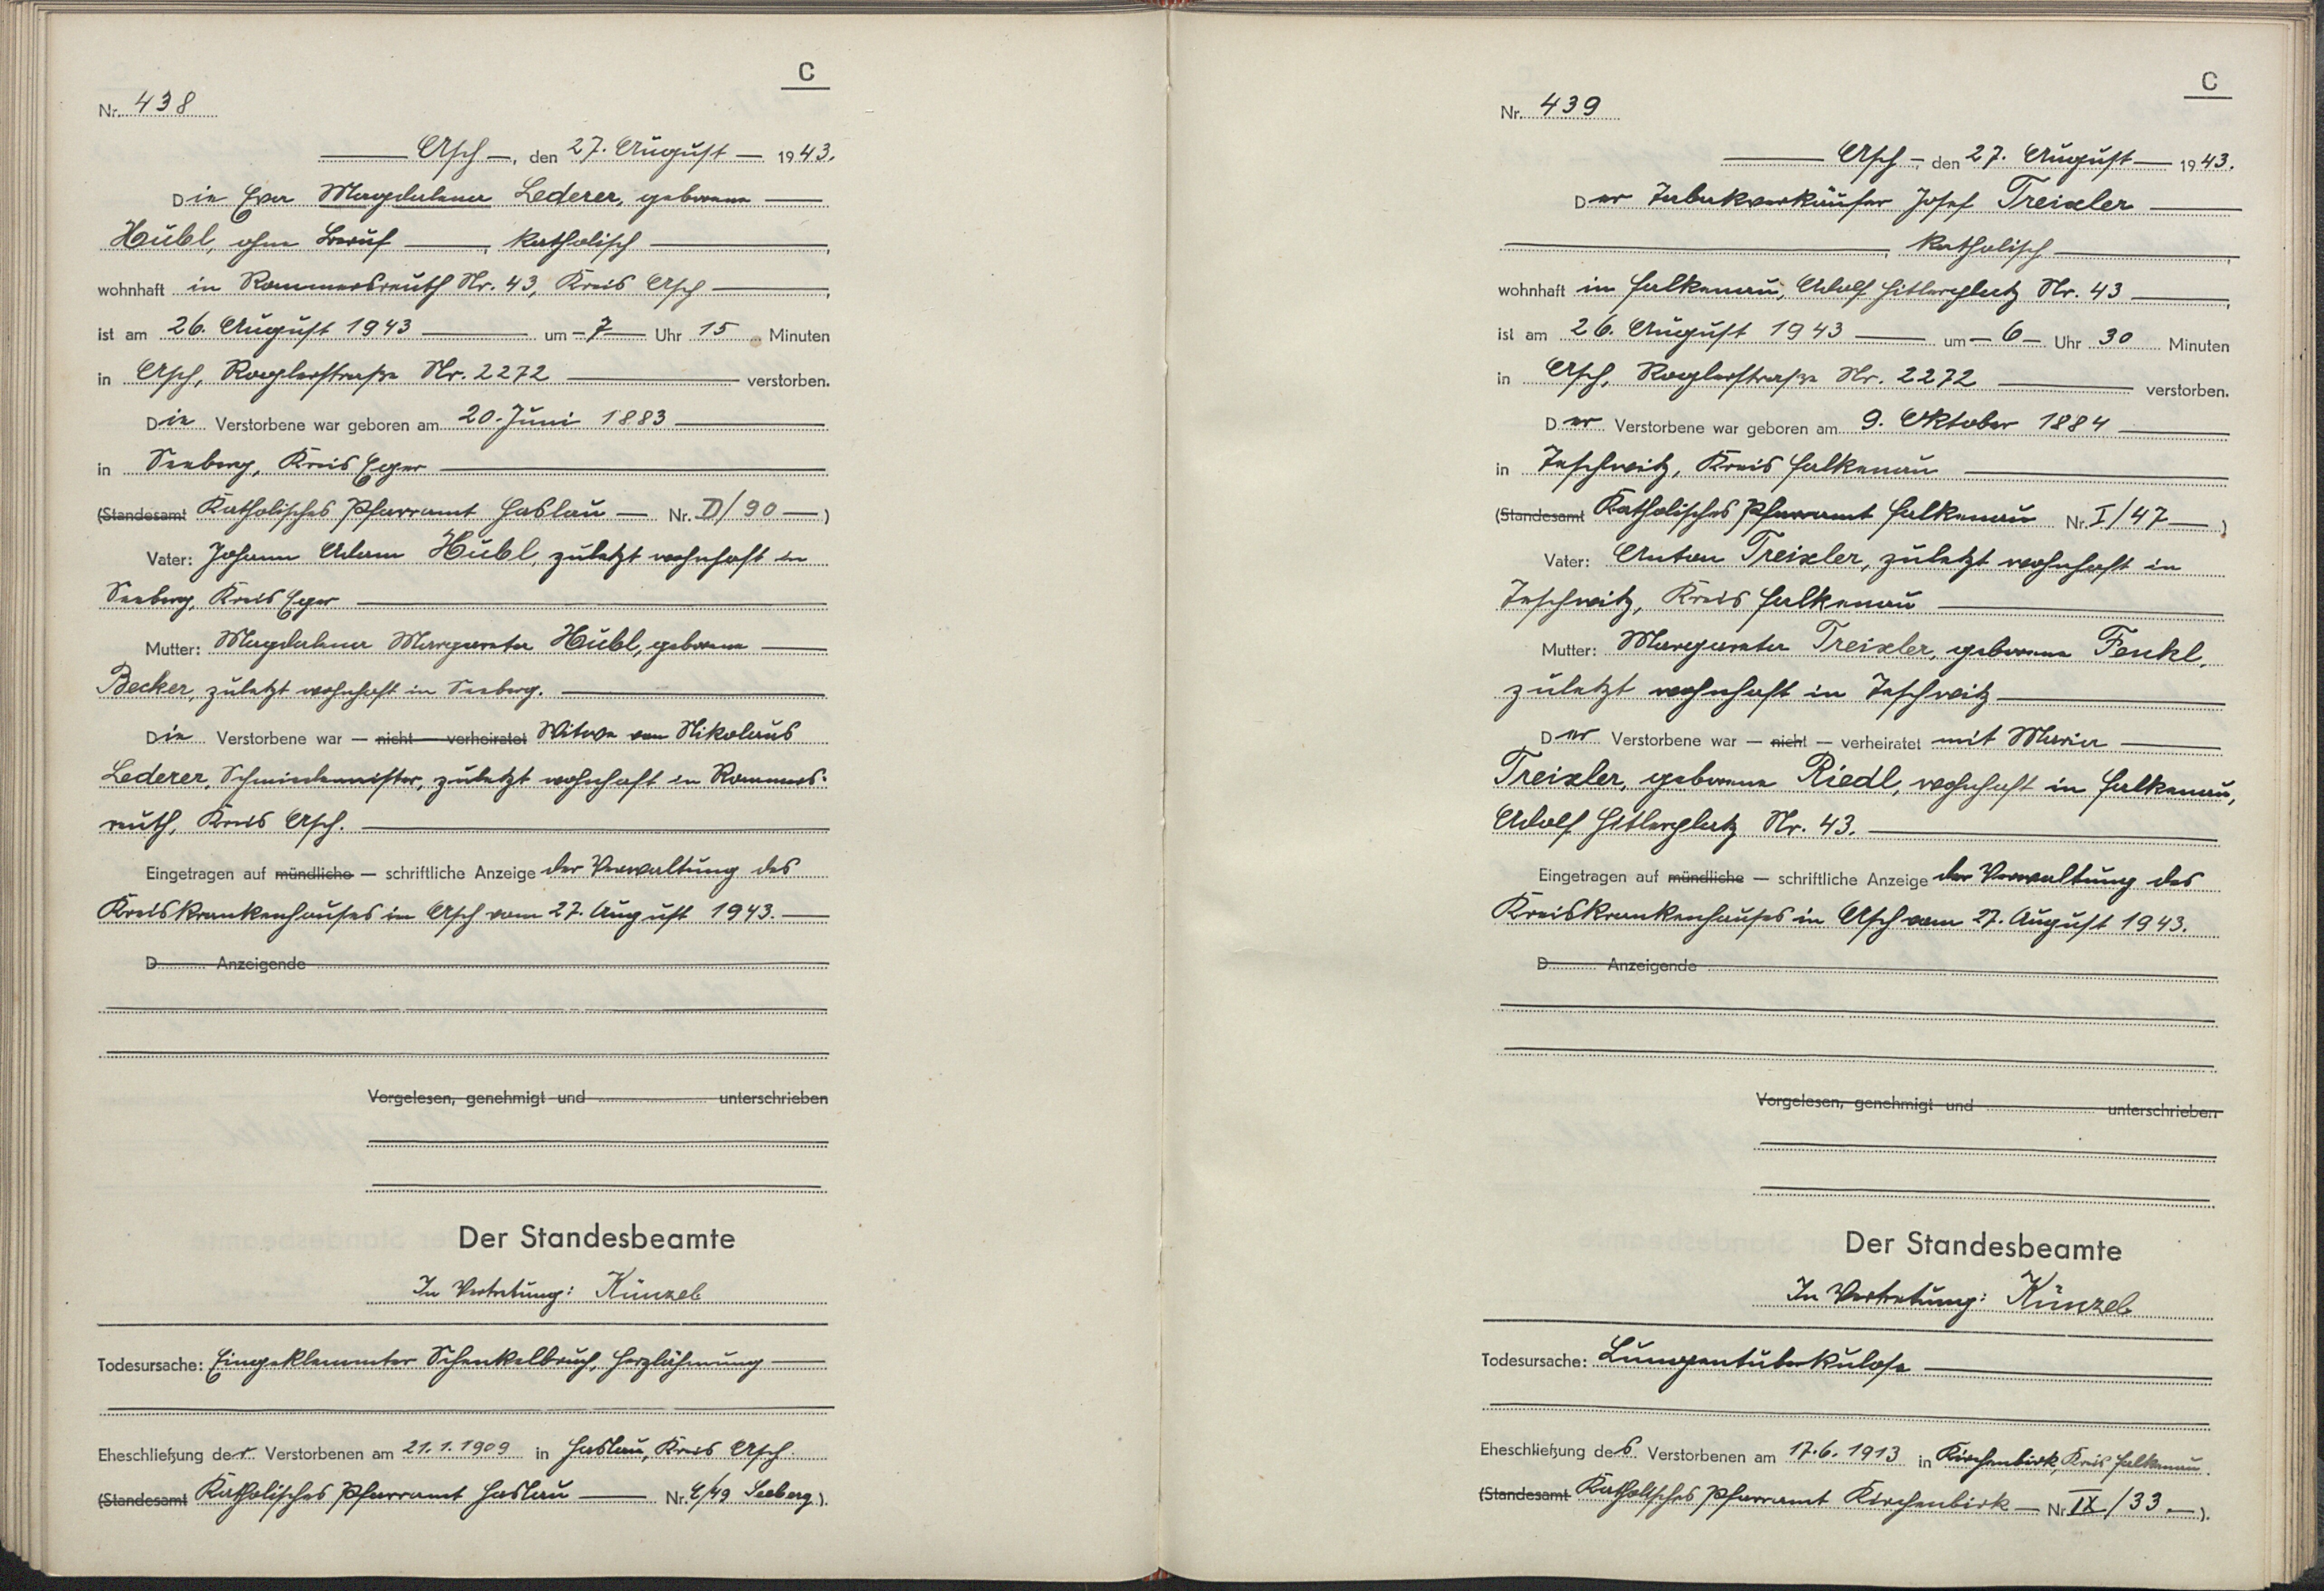 C
Nr. 438
Asch, den 27. August 1943.
Die Eva Magdalena Lederer, geborene
Hübl, ohne Beruf, katholisch,
wohnhaft in Rommersreuth Nr. 43, Kreis Asch,
ist am 26. August 1943 um 7 Uhr 15 Minuten
in Asch, Roglerstraße Nr. 2272 verstorben.
Die Verstorbene war geboren am 20. Juni 1883
in Seeberg, Kreis Eger
(Standesamt Katholisches Pfarramt Haslau Nr. D/90)
Vater: Johann Adam Hübl, zuletzt wohnhaft in
Seeberg, Kreis Eger
Mutter: Magdalena Margareta Hübl, geborene
Becker, zuletzt wohnhaft in Seeberg.
Die Verstorbene war — nicht — verheiratet Witwe von Nikolaus
Lederer, Schmiedemeister, zuletzt wohnhaft in Rommers-
reuth, Kreis Asch.
Eingetragen auf mündliche — schriftliche Anzeige der Verwaltung des
Kreiskrankenhauses in Asch vom 27. August 1943.
D Anzeigende
Vorgelesen, genehmigt und unterschrieben
Der Standesbeamte
In Vertretung: Künzel
Todesursache: Eingeklemmter Schenkelbruch, Herzlähmung
Eheschließung der Verstorbenen am 21.1.1909 in Haslau, Kreis Asch.
(Standesamt Katholisches Pfarramt Haslau Nr. 4/49 Seeberg).
C
Nr. 439
Asch, den 27. August 1943.
Der Tabakverkäufer Josef Treixler
, katholisch,
wohnhaft in Falkenau, Adolf Hitlerplatz Nr. 43,
ist am 26. August 1943 um 6 Uhr 30 Minuten
in Asch, Roglerstraße Nr. 2272 verstorben.
Der Verstorbene war geboren am 9. Oktober 1884
in Teschwitz, Kreis Falkenau
(Standesamt Katholisches Pfarramt Falkenau Nr. I/47)
Vater: Anton Treixler, zuletzt wohnhaft in
Teschwitz, Kreis Falkenau
Mutter: Margareta Treixler, geborene Fenkl,
zuletzt wohnhaft in Teschwitz
Der Verstorbene war — nicht — verheiratet mit Maria
Treixler, geborene Riedl, wohnhaft in Falkenau,
Adolf Hitlerplatz Nr. 43.
Eingetragen auf mündliche — schriftliche Anzeige der Verwaltung des
Kreiskrankenhauses in Asch vom 27. August 1943.
D Anzeigende
Vorgelesen, genehmigt und unterschrieben
Der Standesbeamte
In Vertretung: Künzel
Todesursache: Lungentuberkulose
Eheschließung des Verstorbenen am 17.6.1913 in Kirchenbirk, Kreis Falkenau.
(Standesamt Katholisches Pfarramt Kirchenbirk Nr. IX/33).